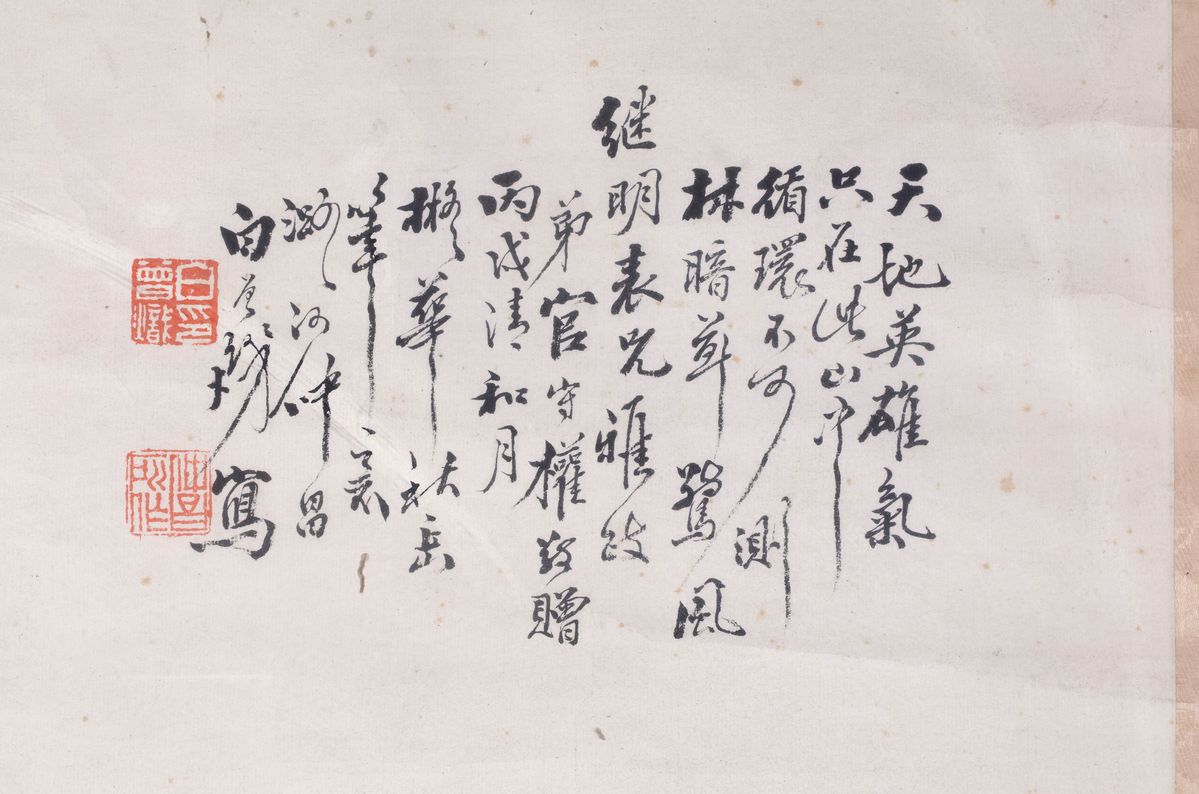 天地英雄氣
只在此山中
循環不可測
林暗草驚風
继明表兄雅政
弟官守權敬贈
丙戌清和月
擬華秋岳
筆之意
潞河仲昌
白曾 寫
白曾熾印